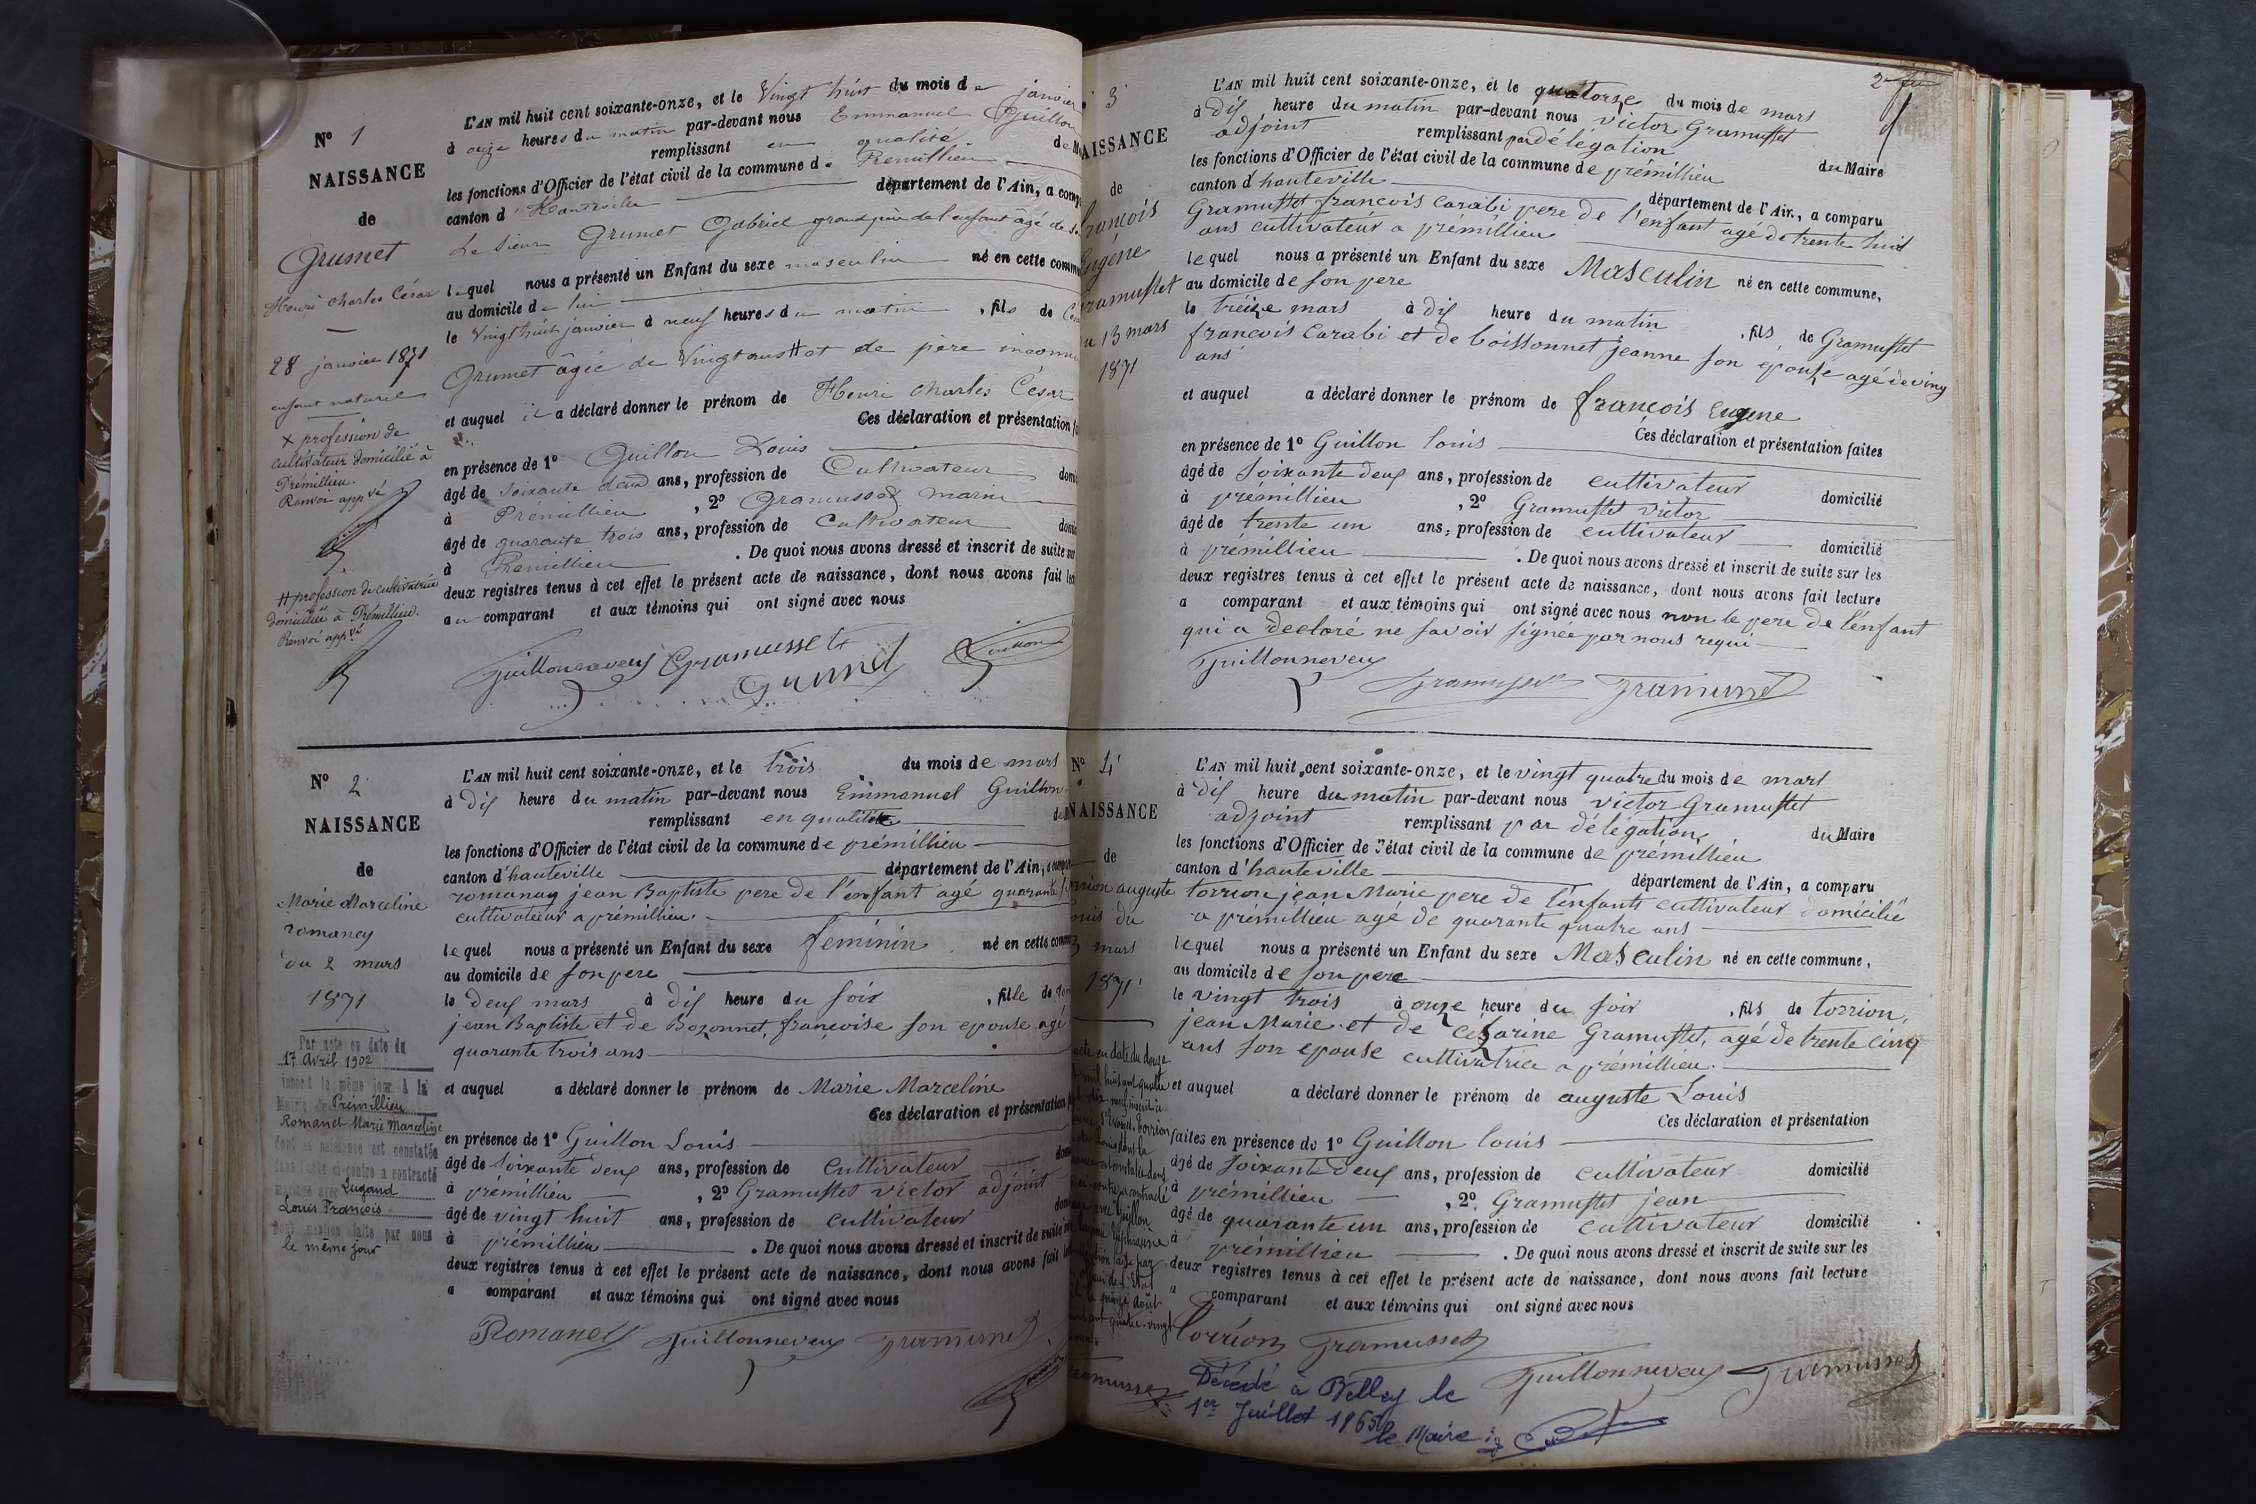 N° 1
NAISSANCE
de
Grumet
Henri Charles César
28 janvier 1871
enfant naturel
X profession de
cultivateur domicilié à
Prémillieu.
Renvoi appvé
# profession de cultivatrice
domiciliée à Prémillieu.
Renvoi appvé
L'AN mil huit cent soixante-onze, et le Vingt huit du mois de janvier
à onze heures du matin par-devant nous Emmanuel Guillon
remplissant en qualité de
les fonctions d'Officier de l'état civil de la commune de Premillieu
canton d'Hauteville département de l'Ain, a comp
Le Sieur Grumet Gabriel grand père de l'enfant âgé de
lequel nous a présenté un Enfant du sexe masculin né en cette commu
au domicile de lui
le Vingt huit janvier à neuf heures du matin, fils de
Grumet âgée de Vingt ans # et de père inconnu
et auquel il a déclaré donner le prénom de Henri Charles César
Ces déclaration et présentation
en présence de 1° Guillon Louis
âgé de soixante deux ans, profession de Cultivateur domi
à Premillieu, 2° Gramusset Marin
âgé de quarante trois ans, profession de Cultivateur domi
à Premillieu. De quoi nous avons dressé et inscrit de suite sur
deux registres tenus à cet effet le présent acte de naissance, dont nous avons fait lec
au comparant et aux témoins qui ont signé avec nous
Guillonneveu Gramusset Guillon
Grumet
N° 2
NAISSANCE
de
Marie Marceline
romaney
du 2 mars
1871
Par acte en date du
17 Avril 1902
inscrit le même jour à la
Mairie de Prémillieu
Romanet Marie Marceline
dont la naissance est constatée
dans l'acte ci-contre a contracté
mariage avec Lugand
Louis François
Dont mention faite par nous
le même jour
L'AN mil huit cent soixante-onze, et le trois du mois de mars
à dix heure du matin par-devant nous Emmanuel Guillon
remplissant en qualité
les fonctions d'Officier de l'état civil de la commune de prémillieu
canton d'hauteville département de l'Ain, a
romanay jean Baptiste pere de l'enfant agé quarante
cultivateur a prémillieu
lequel nous a présenté un Enfant du sexe féminin né en cette commu
au domicile de son pere
le deux mars à dix heure du soir, fille de
jean Baptiste et de Bozonnet, françoise son epouse agé
quarante trois ans
et auquel a déclaré donner le prénom de Marie Marceline
Ces déclaration et présentation
en présence de 1° Guillon Louis
âgé de soixante deux ans, profession de cultivateur
à prémillieu, 2° Gramusset victor adjoint
âgé de vingt huit ans, profession de cultivateur
à prémillieu. De quoi nous avons dressé et inscrit de suite
deux registres tenus à cet effet le présent acte de naissance, dont nous avons fait
a comparant et aux témoins qui ont signé avec nous
Romanet Guillonneveu Gramusset
2
3
AISSANCE
de
françois
Eugéne
Gramusset
13 mars
1871
L'AN mil huit cent soixante-onze, et le quatorze du mois de mars
à dix heure du matin par-devant nous victor Gramusset
adjoint remplissant par délégation du Maire
les fonctions d'Officier de l'état civil de la commune de prémillieu
canton d'hauteville département de l'Ain, a comparu
Gramusset francois Carabi pere de l'enfant agé de trente huit
ans cultivateur a prémillieu
lequel nous a présenté un Enfant du sexe Masculin né en cette commune,
au domicile de son pere
le treize mars à dix heure du matin, fils de Gramusset
francois Carabi et de boissonnet jeanne son epouse agé de ving
ans
et auquel a déclaré donner le prénom de françois Eugene
Ces déclaration et présentation faites
en présence de 1° Guillon louis
âgé de soixante deux ans, profession de cultivateur domicilié
à prémillieu, 2° Gramusset victor
âgé de trente un ans, profession de cultivateur domicilié
à prémillieu. De quoi nous avons dressé et inscrit de suite sur les
deux registres tenus à cet effet le présent acte de naissance, dont nous avons fait lecture
a comparant et aux témoins qui ont signé avec nous non le pere de l'enfant
qui a declaré ne savoir signée par nous requi
Guillonneveu
Gramusset Gramusset
N° 4
NAISSANCE
de
auguste
du
mars
1871
L'AN mil huit cent soixante-onze, et le vingt quatre du mois de mars
à dix heure du matin par-devant nous victor Gramusset
adjoint remplissant par délégation du Maire
les fonctions d'Officier de l'état civil de la commune de prémillieu
canton d'hauteville département de l'Ain, a comparu
torrion jean Marie pere de l'enfant cultivateur domicilié
a prémillieu agé de quarante quatre ans
lequel nous a présenté un Enfant du sexe Masculin né en cette commune,
au domicile de son pere
le vingt trois à onze heure du soir, fils de torrion,
jean Marie et de Cézarine Gramusset, agé de trente cinq
ans son epouse cultivatrice a prémillieu.
et auquel a déclaré donner le prénom de auguste Louis
Ces déclaration et présentation
faites en présence de 1° Guillon louis
âgé de soixante deux ans, profession de cultivateur domicilié
à prémillieu, 2° Gramusset jean
âgé de quarante un ans, profession de cultivateur domicilié
à prémillieu. De quoi nous avons dressé et inscrit de suite sur les
deux registres tenus à cet effet le présent acte de naissance, dont nous avons fait lecture
a comparant et aux témoins qui ont signé avec nous
torrion Gramusset
Guillonneveu Gramusset
Décédé à Belley le
1er Juillet 1965
le Maire